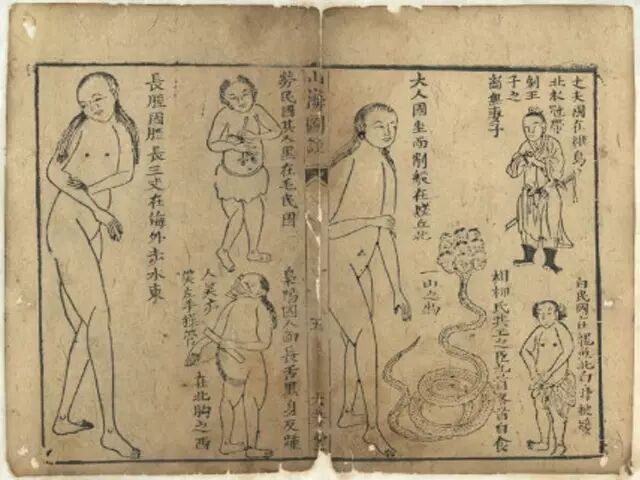 丈夫國在維鳥
北衣冠帶
劍王
子之
無妻子
白民國在龍魚北白身披髮
大人國坐而削船在丘北
相柳氏共工之臣九首各首自食
一山之物
山海圖
五
勞民國其人黑在毛民國
梟陽國人面長黑身反踵
人笑亦
笑左手操管
在北朐之西
長股國腿長三丈在海外赤水東